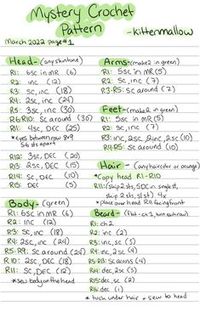 Mystery Crochet
Pattern
-kittenmallow
March 2022 page #1
Head- (any skintone)
R1: 6sc in MR (6)
R2: inc (12)
R3: sc, inc (18)
R4: 2sc, inc (24)
R5: 3sc, inc (30)
R6-R10: Sc around (30)
R11: 4sc, DEC (25)
R12: 3sc, DEC (20)
R13: 2sc, DEC (15)
R14: sc, DEC (10)
R15: DEC (5)
Body- (green)
R1: 6sc in MR (6)
R2: inc (12)
R3: SC, inc (18)
R4: 2sc, inc (24)
R5-R9: Sc around (24)
R10: 2sc, DEC (18)
R11: Sc, DEC (12)
*sew body on the head
Arms- (make 2 in green)
R1: 5sc in MR (5)
R2: Sc, inc (7)
R3-R5: Sc around (7)
Feet- (make 2 in green)
R1: 5sc in MR (5)
R2: Sc, inc (7)
R3: inc, 2sc, 2inc, 2sc (10)
R4-R5: Sc around (10)
Hair- (any haircolor or orange)
*Copy head R1-R10
*place over head R10 facing front
Beard-
R1: ch 2
R2: inc (2)
R3: inc, sc (3)
R4: inc, 2sc (4)
R4: dec, 2sc (3)
R5: dec, sc (2)
R6: dec (1)
* tuck under hair + sew to head